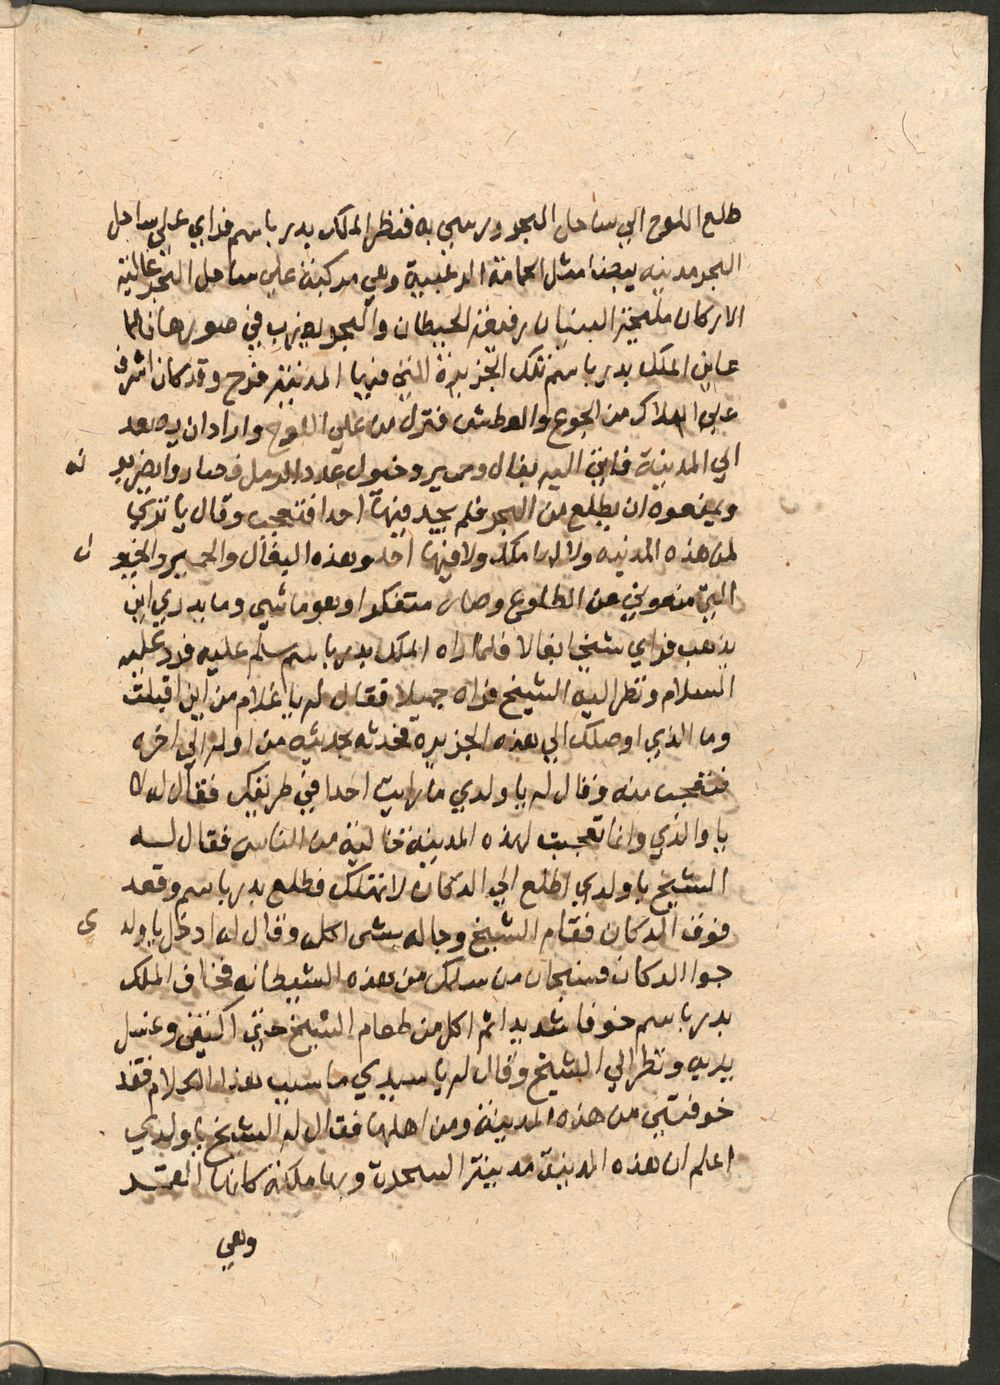 طلع اللوح الي ساحل البحر ورسي به فنظر الملك بدر باسم فراي علي ساحل
البحر مدينه بيضا مثل الحمامة الرغبية وهي مركبة علي ساحل البحر عالية
الاركان مليحة البنيان رفيعة الحيطان والبحر يضرب في صورها فلما
عاين الملك بدر باسم تلك الجزيرة التي فيها المدينة فرح وقد كان اشرف
علي الهلاك من الجوع والعطش فنزل من علي اللوح واراد ان يصعد
الي المدينة فاتي اليه بغال وحمير وخيول عدد الرمل فصاروا يضربو نه
ويمنعوه ان يطلع من البحر فلم يجد فيها احدا فتعجب وقال يا تري
لمن هذه المدينه ولا لها ملك ولا فيها احد وهذه البغال والحمير والخيو ل
التي منعوني عن الطلوع وصار متفكرا وهو ماشي وما يدري اين
يذهب فراي شيخا بقالا فلما راه الملك بدر باسم سلم عليه فرد عليه
السلام ونظر اليه الشيخ فراه جميلا فقال له يا غلام من اين اقبلت
وما الذي اوصلك الي هذه الجزيره فحدثه بحديثه من اوله الي اخره
فتعجب منه وقال له يا ولدي ما رايت احدا في طريقك فقال له لا
يا والدي وانما تعجبت لهذه المدينة خالية من الناس فقال لـه
الشيخ يا ولدي اطلع الي الدكان لا تهلك فطلع بدر باسم وقعد
فوق الدكان فقام الشيخ وجا له بشي اكله وقال له ادخل يا ولد ي
جوا الدكان فسبحان من سلمك من هذه الشيطانه فخاف الملك
بدر باسم خوفا شديدا ثم اكل من طعام الشيخ حتي اكتفي وغسل
يديه ونظر الي الشيخ وقال له يا سيدي ما سبب هذا الكلام فقد
خوفتني من هذه المدينة ومن اهلها فقال له الشيخ يا ولدي
اعلم ان هذه المدينة مدينة السحرة وبها ملكة كانها القمـر
وهي